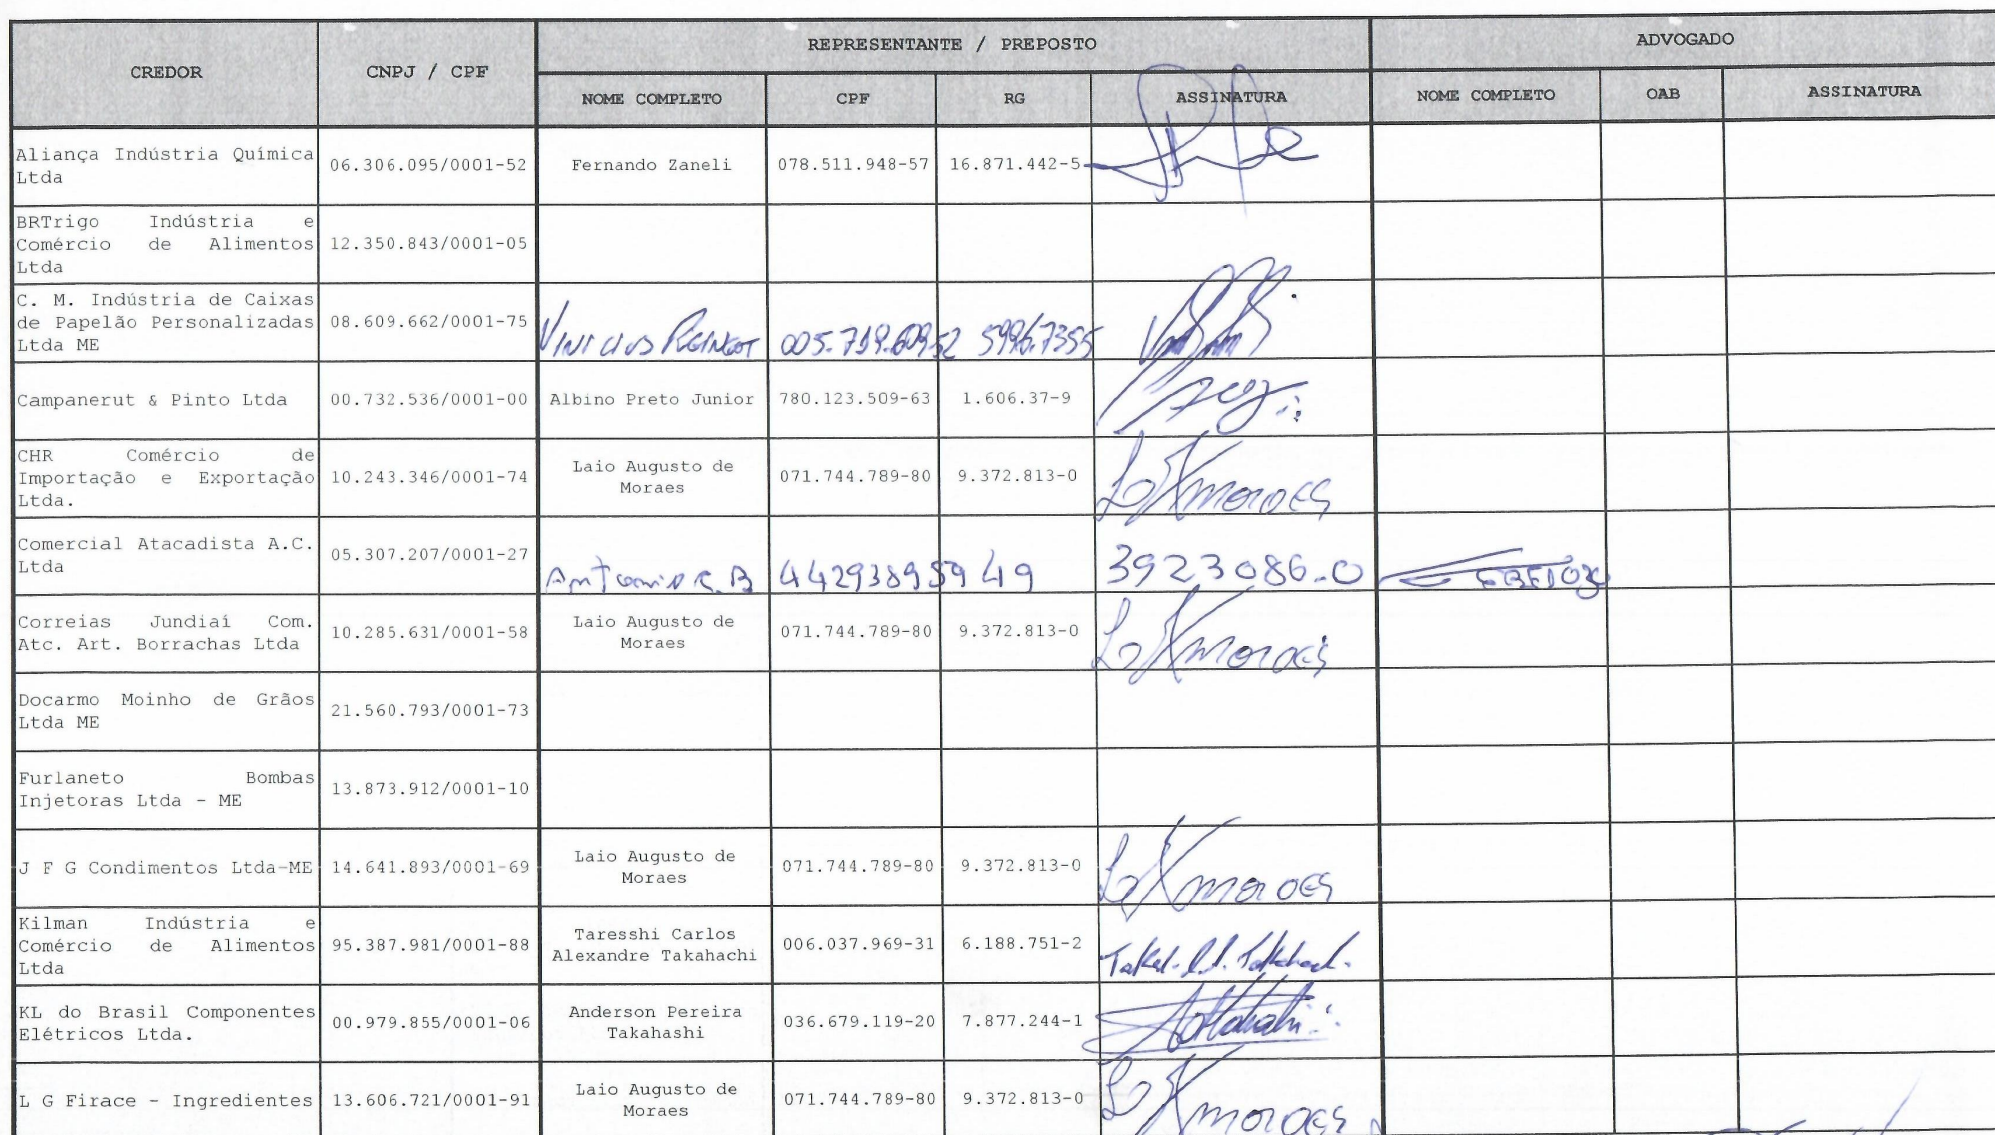 REPRESENTANTE / PREPOSTO
ADVOGADO
CREDOR
CNPJ / CPF
NOME COMPLETO
CPF
RG
ASSINATURA
NOME COMPLETO
OAB
ASSINATURA
Aliança Indústria Química
Ltda
06.306.095/0001-52
Fernando Zaneli
078.511.948-57
16.871.442-5
BRTrigo Indústria e
Comércio de Alimentos
Ltda
12.350.843/0001-05
C. M. Indústria de Caixas
de Papelão Personalizadas
Ltda ME
08.609.662/0001-75
Vinicius
Campanerut & Pinto Ltda
00.732.536/0001-00
Albino Preto Junior
780.123.509-63
1.606.37-9
CHR Comércio de
Importação e Exportação
Ltda.
10.243.346/0001-74
Laio Augusto de
Moraes
071.744.789-80
9.372.813-0
Moraes
Comercial Atacadista A.C.
Ltda
05.307.207/0001-27
Antonio C. B
442938959 49
3923086-0
Correias Jundiaí Com.
Atc. Art. Borrachas Ltda
10.285.631/0001-58
Laio Augusto de
Moraes
071.744.789-80
9.372.813-0
Moraes
Docarmo Moinho de Grãos
Ltda ME
21.560.793/0001-73
Furlaneto Bombas
Injetoras Ltda - ME
13.873.912/0001-10
J F G Condimentos Ltda-ME
14.641.893/0001-69
Laio Augusto de
Moraes
071.744.789-80
9.372.813-0
Moraes
Kilman Indústria e
Comércio de Alimentos
Ltda
95.387.981/0001-88
Taresshi Carlos
Alexandre Takahachi
006.037.969-31
6.188.751-2
KL do Brasil Componentes
Elétricos Ltda.
00.979.855/0001-06
Anderson Pereira
Takahashi
036.679.119-20
7.877.244-1
L G Firace - Ingredientes
13.606.721/0001-91
Laio Augusto de
Moraes
071.744.789-80
9.372.813-0
Moraes